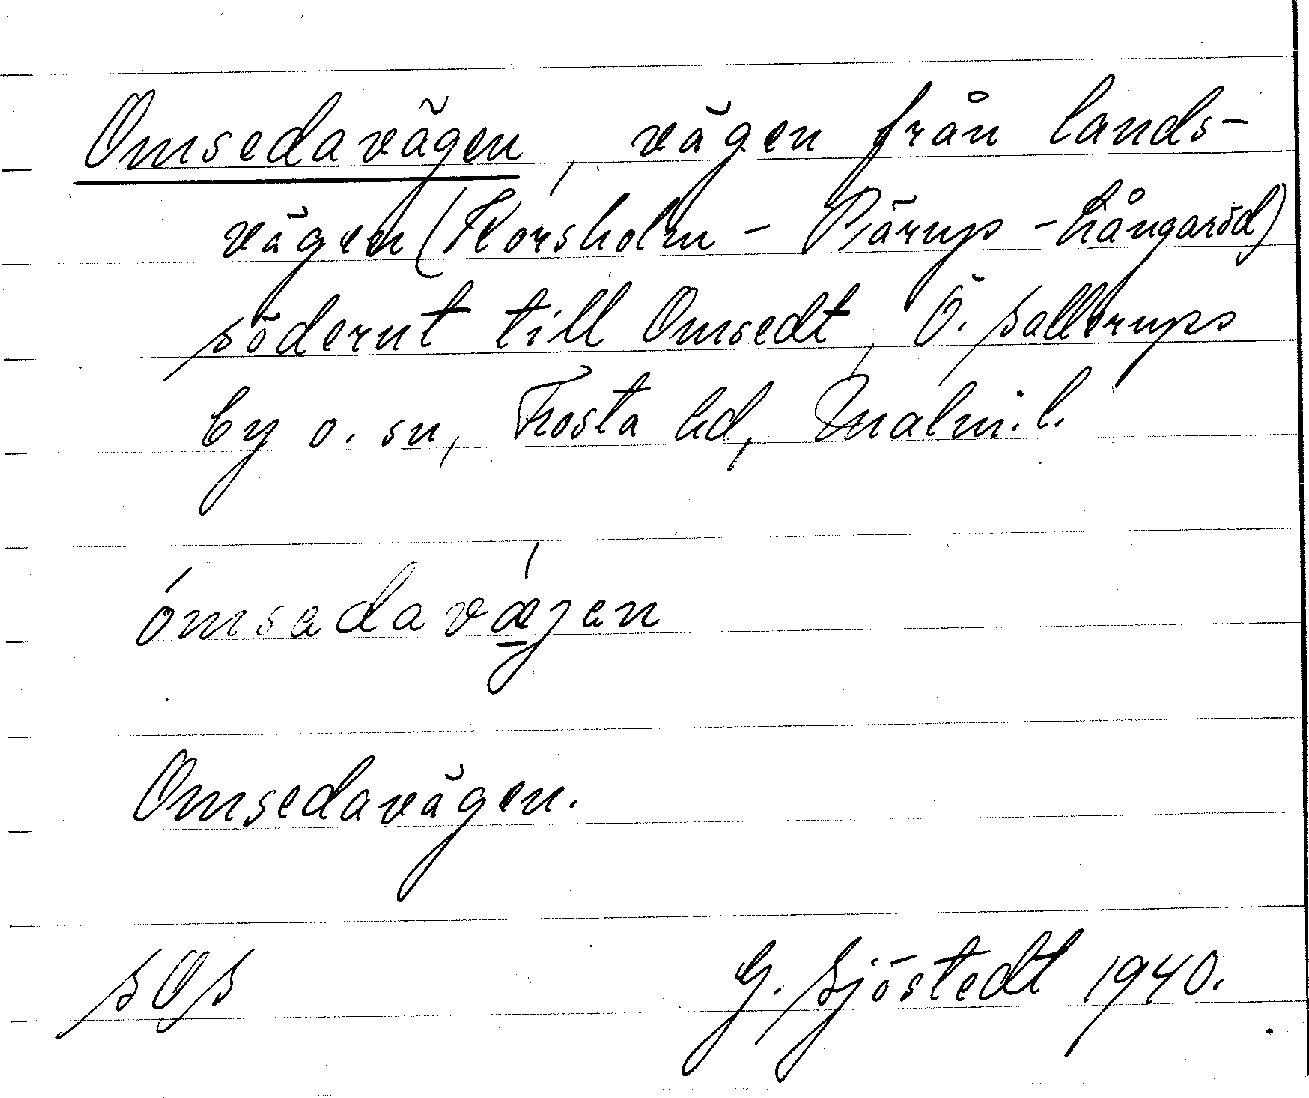 Omsedavägen, vägen från lands-
vägen (Korsholm - Pärup - Långaröd)
söderut till Omsedt, Ö. Sallerups
by o. sn, Frosta hd, Malm. l.
ómsadavǽ̱jen
Omsedavägen.
SOS G. Sjöstedt 1940.